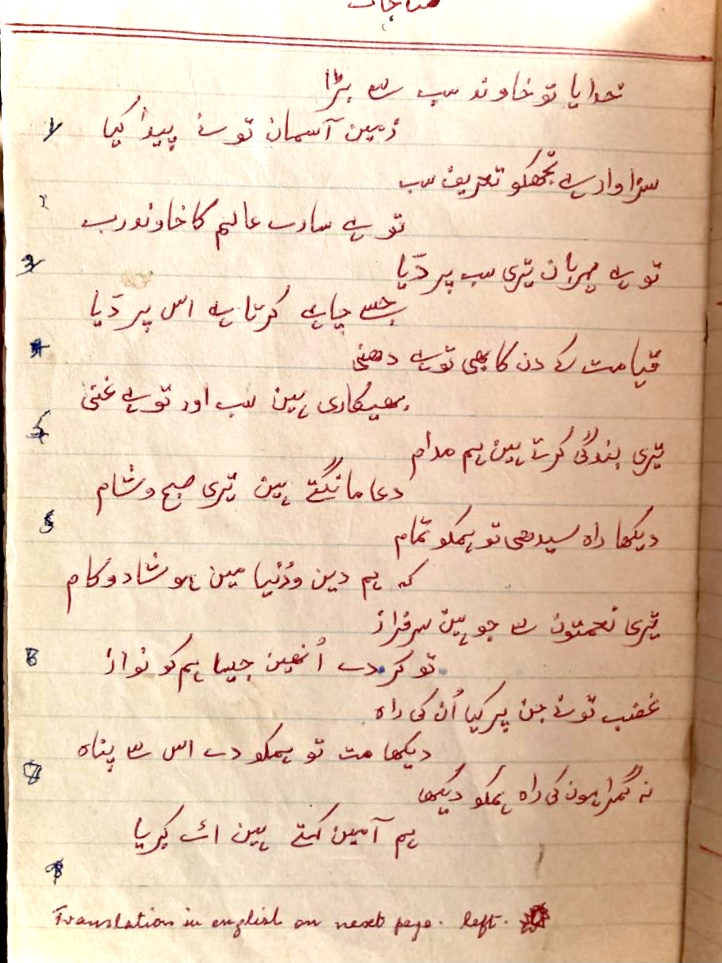 مناجات
خدایا تو خاوند سب سے بڑا
زمین آسمان تونے پیدا کیا
1
سزاوار ہے تجھکو تعریف سب
تو ہے سارے عالم کا خاوند رب
2
تو ہے مہربان تیری سب پر دَیا
جسے چاہے کرتا ہے اس پر دَیا
3
قیامت کے دن کا بھی تو ہے دھنی
بھیکاری ہین سب اور تو ہے غنی
4
تیری بندگی کرتے ہین ہم مدام
دعا مانگتے ہین تیری صبح و شام
دیکھا راہ سیدھی تو ہمکو تمام
5
کہ ہم دین و دُنیا مین ہو شاد و کام
تیری نعمتون سے جو ہین سرفراز
تو کر دے اُنھین جیسا ہم کو نواز
6
غضب تونے جن پر کیا اُن کی راہ
دیکھا مت تو ہمکو دے اس سے پناہ
نہ گمراہون کی راہ ہمکو دیکھا
7
ہم آمین کہتے ہین اے کبریا
8
Translation in english on next page. left.